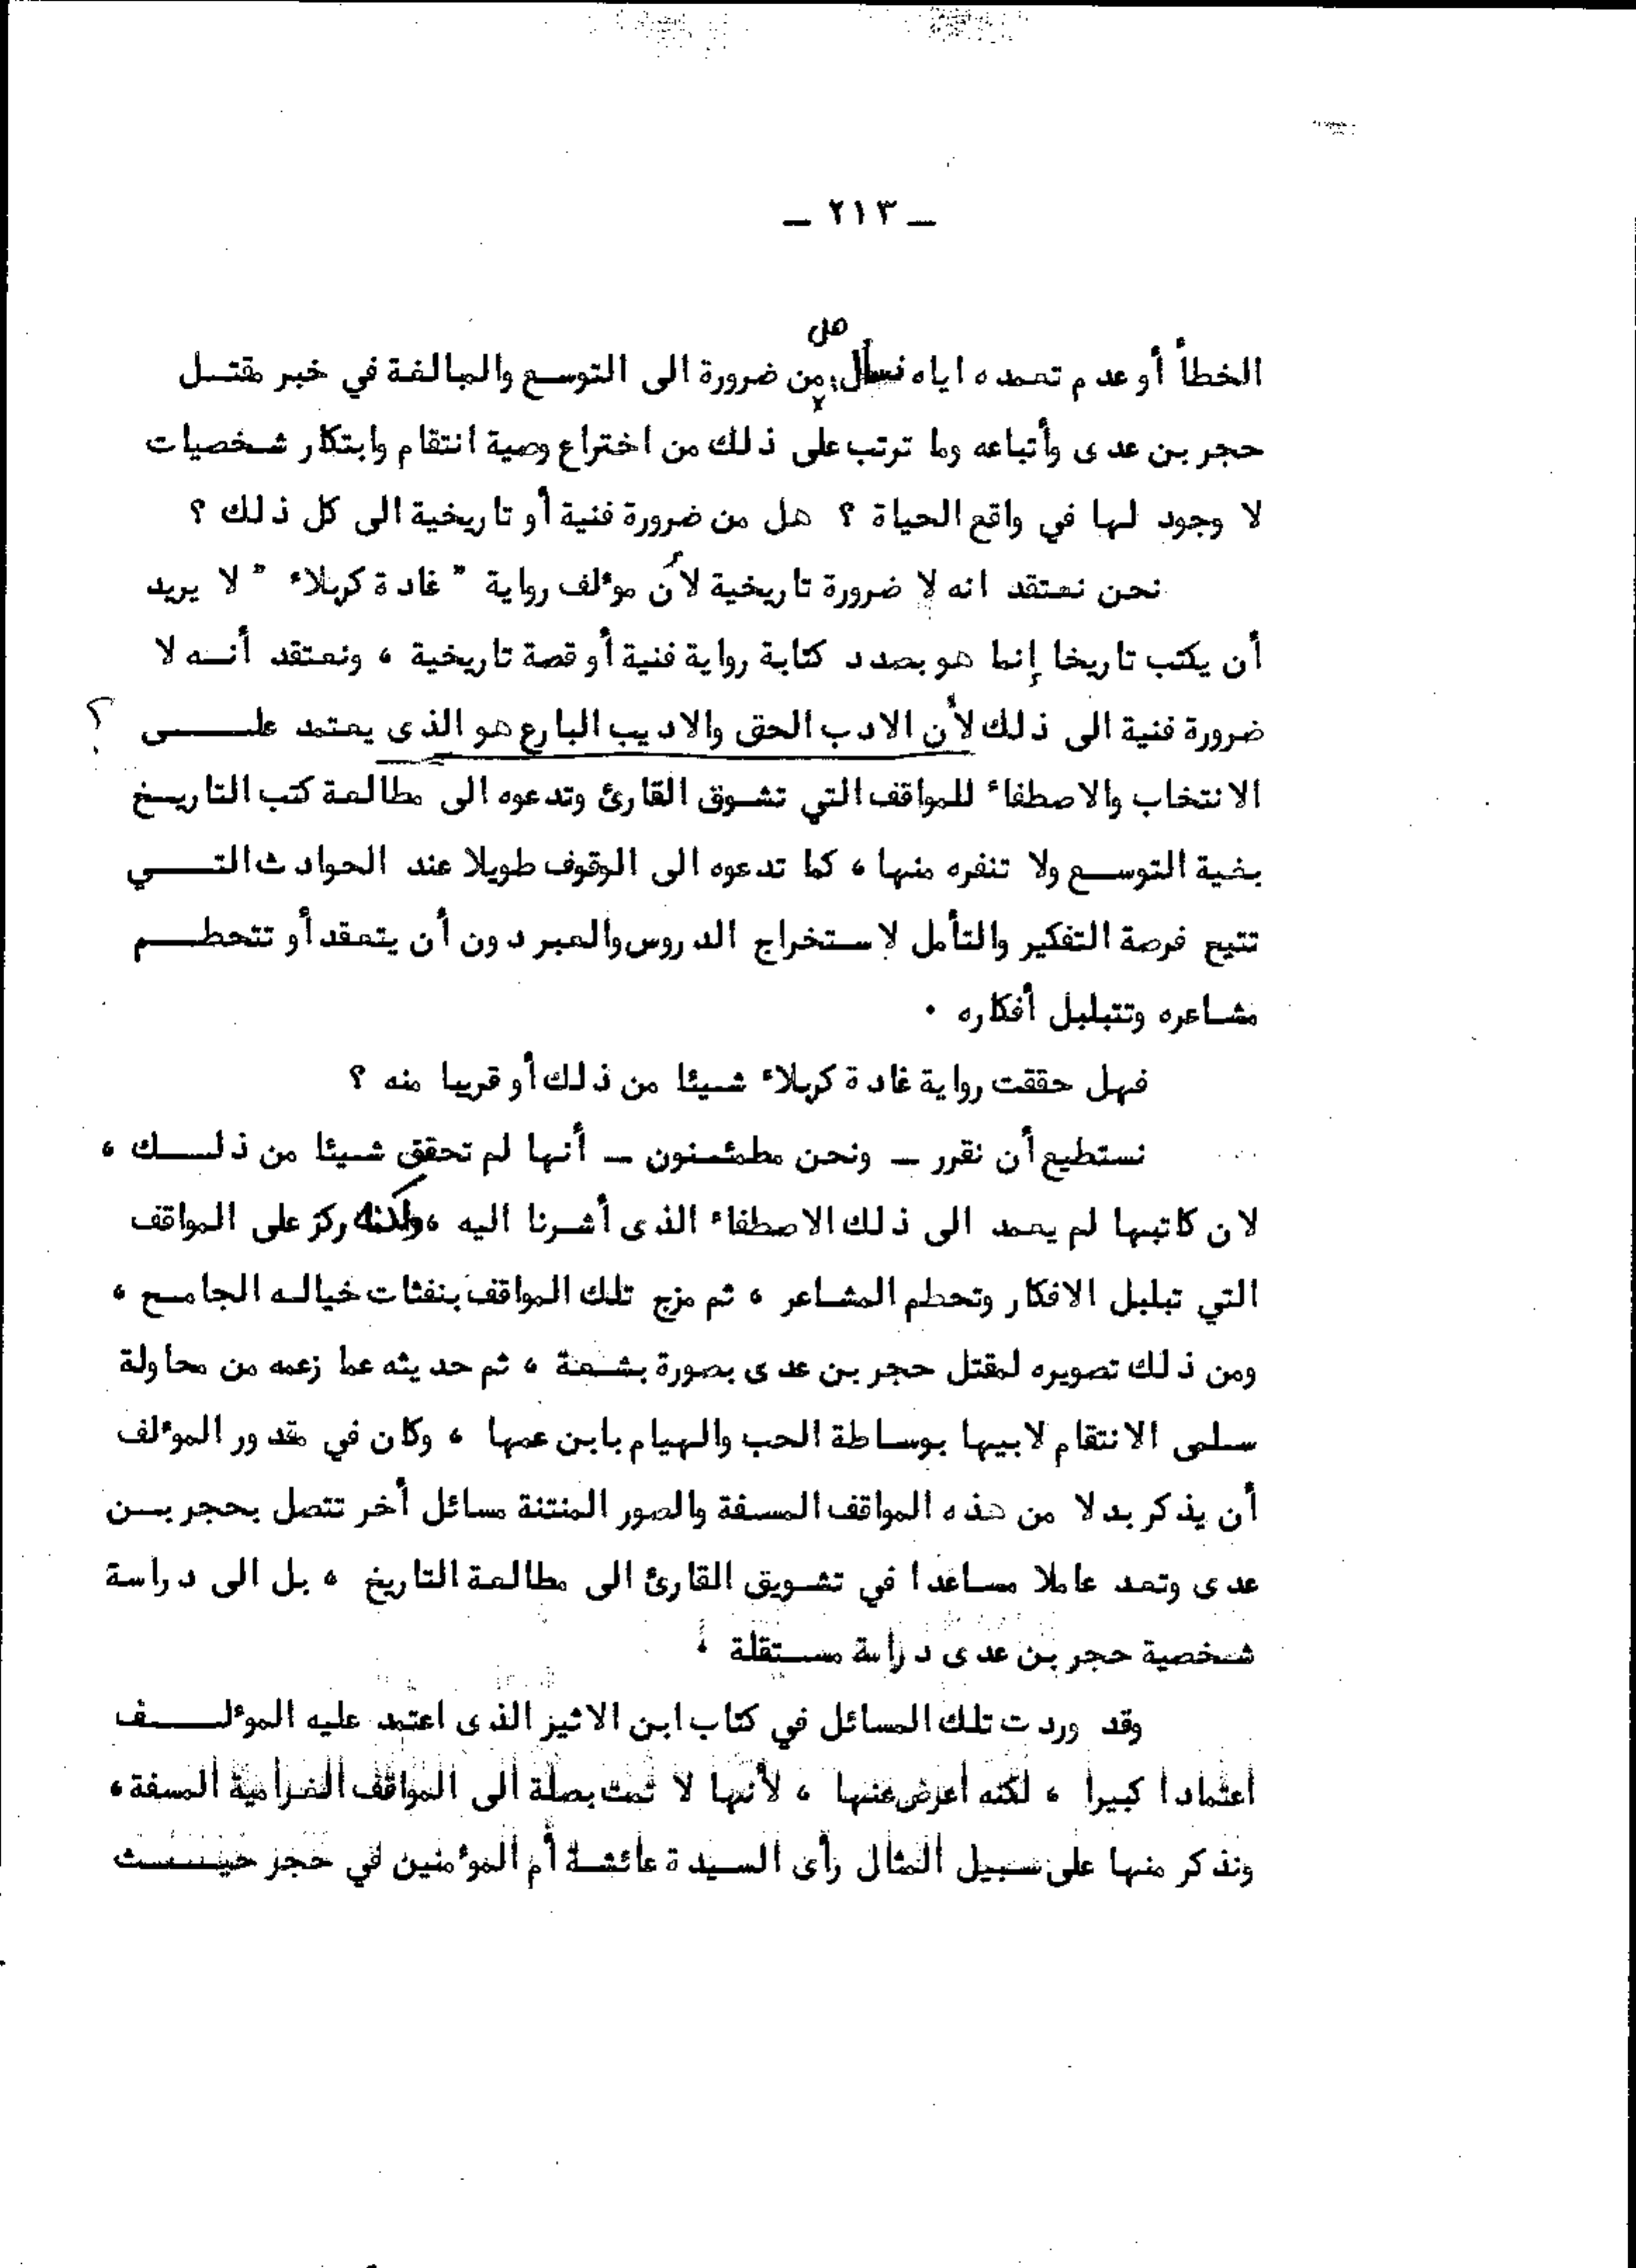 ـ ٢١٣ ـ
هل
الخطأ أو عدم تعمده اياه نسأل: من ضرورة الى التوسع والمبالغة في خبر مقتل
حجر بن عدى وأتباعه وما ترتب على ذلك من اختراع وصية انتقام وابتكار شخصيات
لا وجود لها في واقع الحياة ؟ هل من ضرورة فنية أو تاريخية الى كل ذلك ؟
نحن نعتقد انه لا ضرورة تاريخية لأن مؤلف رواية " غادة كربلاء " لا يريد
أن يكتب تاريخا إنما هو بصدد كتابة رواية فنية أو قصة تاريخية ، ونعتقد أنه لا
ضرورة فنية الى ذلك لأن الادب الحق والاديب البارع هو الذى يعتمد على ؟
الانتخاب والاصطفاء للمواقف التي تشوق القارئ وتدعوه الى مطالعة كتب التاريخ
بغية التوسع ولا تنفره منها ، كما تدعوه الى الوقوف طويلا عند الحوادث التي
تتيح فرصة التفكير والتأمل لاستخراج الدروس والعبر دون أن يتعقد أو تتحطم
مشاعره وتتبلبل أفكاره .
فهل حققت رواية غادة كربلاء شيئا من ذلك أو قريبا منه ؟
نستطيع أن نقرر ـ ونحن مطمئنون ـ أنها لم تحقق شيئا من ذلك ،
لان كاتبها لم يعمد الى ذلك الاصطفاء الذى أشرنا اليه ، ولكنه ركز على المواقف
التي تبلبل الافكار وتحطم المشاعر ، ثم مزج تلك المواقف بنفثات خياله الجامح ،
ومن ذلك تصويره لمقتل حجر بن عدى بصورة بشعة ، ثم حديثه عما زعمه من محاولة
سلمى الانتقام لابيها بوساطة الحب والهيام بابن عمها ، وكان في مقدور المؤلف
أن يذكر بدلا من هذه المواقف المسفة والصور المنتنة مسائل أخر تتصل بحجر بن
عدى وتعد عاملا مساعدا في تشويق القارئ الى مطالعة التاريخ ، بل الى دراسة
شخصية حجر بن عدى دراسة مستقلة .
وقد وردت تلك المسائل في كتاب ابن الاثير الذى اعتمد عليه المؤلف
اعتمادا كبيرا ، لكنه أعرض عنها ، لأنها لا تمت بصلة الى المواقف الغرامية المسفة ،
ونذكر منها على سبيل المثال رأى السيدة عائشة أم المؤمنين في حجر حيث